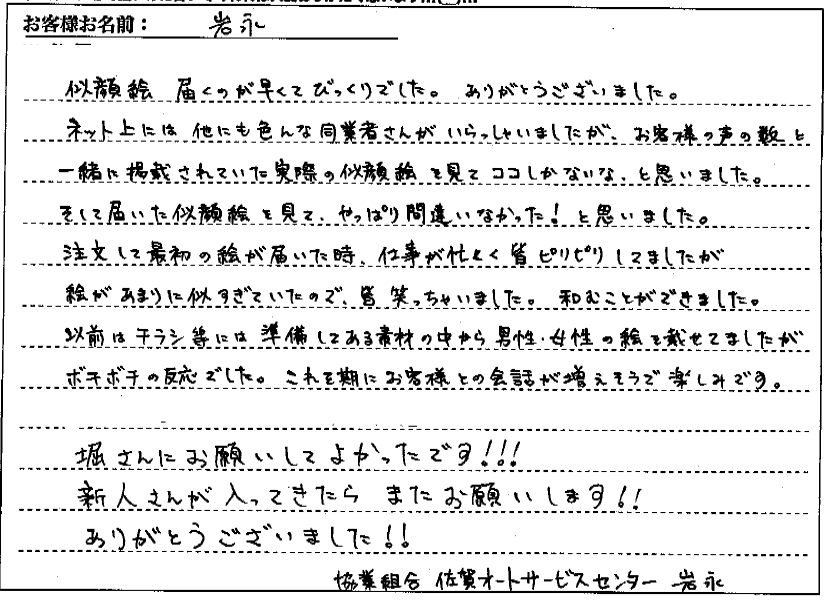 お客様お名前： 岩永
似顔絵 届くのが早くてびっくりでした。 ありがとうございました。
ネット上には 他にも色んな同業者さんが いらっしゃいましたが、お客様の声の数と
一緒に掲載されていた実際の似顔絵を見てココしかないな、と思いました。
そして届いた似顔絵を見て、やっぱり間違いなかった！と思いました。
注文して最初の絵が届いた時、仕事が忙しく皆ピリピリしてましたが
絵があまりに似すぎていたので、皆笑っちゃいました。 和むことができました。
以前はチラシ等には 準備してある素材の中から 男性・女性の絵を載せてましたが
ボチボチの反応でした。これを期にお客様との会話が増えそうで楽しみです。
堀さんにお願いしてよかったです!!!
新人さんが入ってきたら またお願いします!!
ありがとうございました!!
協業組合 佐賀オートサービスセンター 岩永